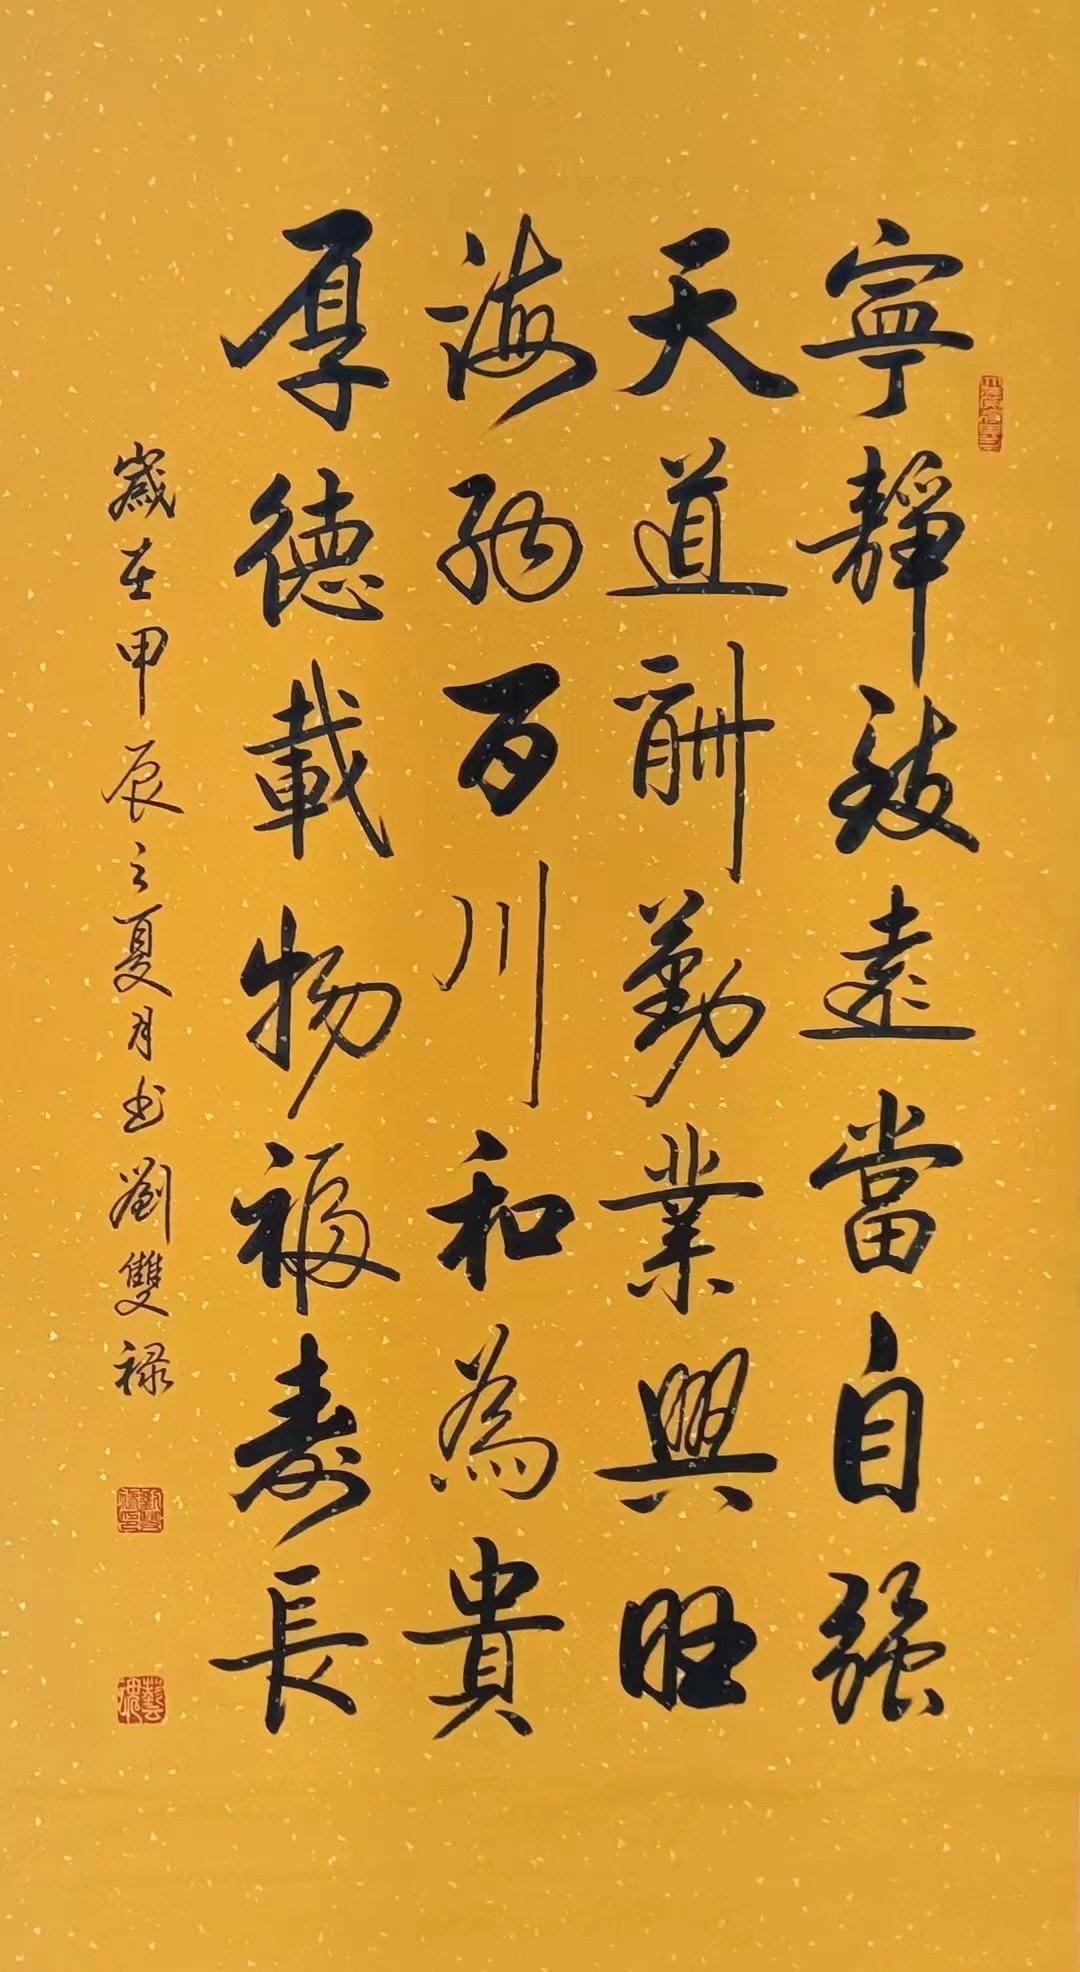 寧靜致遠當自強
天道酬勤業興旺
海納百川和為貴
厚德載物福壽長
歲在甲辰之夏月書劉雙禄